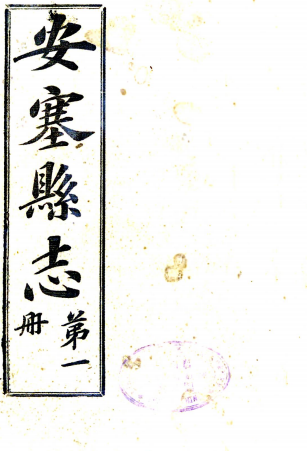 安塞縣志
第一
冊